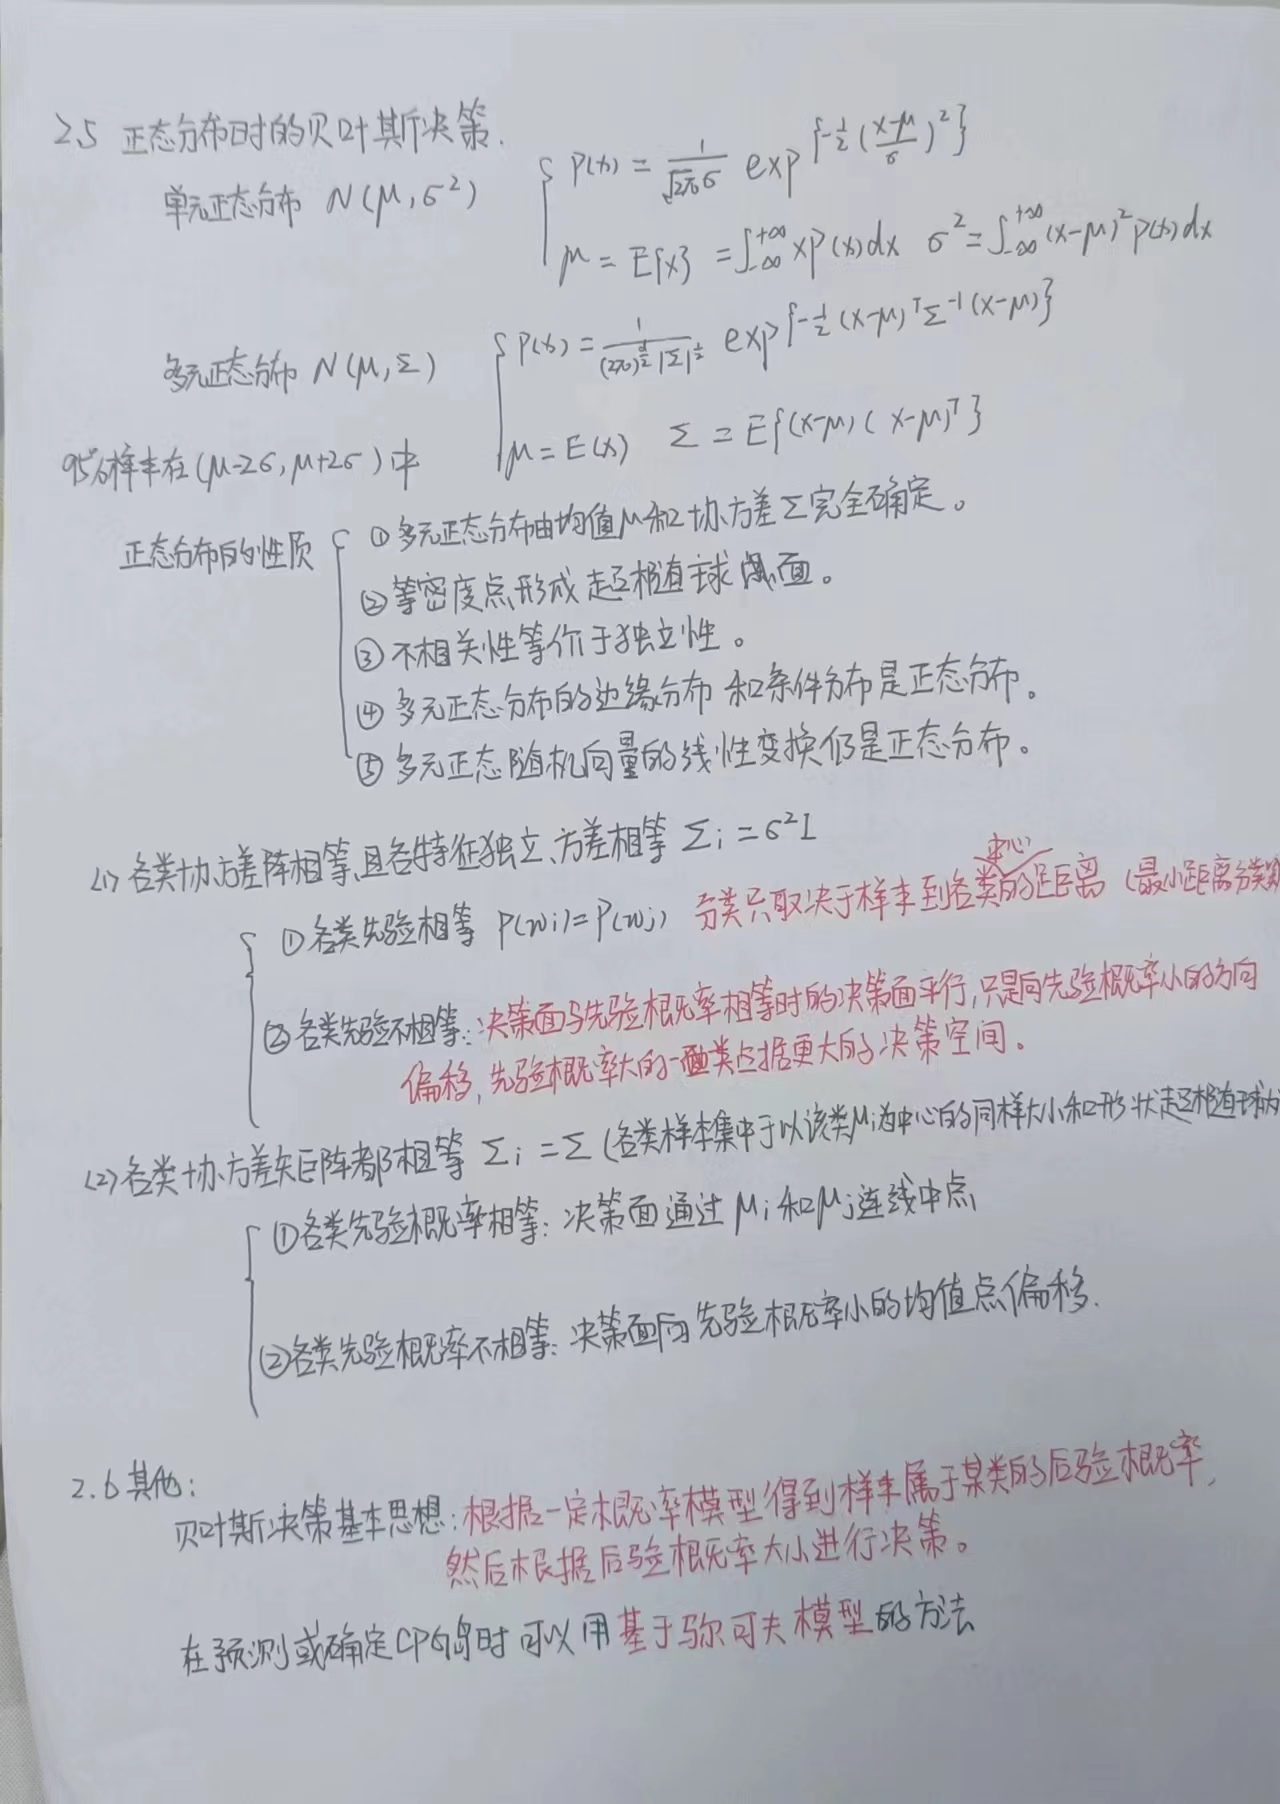 2.5 正态分布时的贝叶斯决策.
单元正态分布 N(μ,σ²) { p(x) = 1/(√2π σ) exp{-1/2 ((x-μ)/σ)²}
μ = E{x} = ∫_{-∞}^{+∞} xp(x)dx σ² = ∫_{-∞}^{+∞} (x-μ)² p(x)dx
多元正态分布 N(μ,Σ) { p(x) = 1/((2π)^{d/2} |Σ|^{1/2}) exp{-1/2 (x-μ)ᵀ Σ⁻¹ (x-μ)}
μ = E(x) Σ = E{(x-μ)(x-μ)ᵀ}
95%样本在(μ-2σ,μ+2σ)中
正态分布的性质 { ①多元正态分布由均值μ和协方差Σ完全确定。
②等密度点形成超椭球面。
③不相关性等价于独立性。
④多元正态分布的边缘分布和条件分布是正态分布。
⑤多元正态随机向量的线性变换仍是正态分布。
(1)各类协方差阵相等,且各特征独立、方差相等 Σi = σ²I
①各类先验相等 P(wi)=P(wj) 分类只取决于样本到各类中心的距离(最小距离分类
②各类先验不相等:决策面与先验概率相等时的决策面平行,只是向先验概率小的方向
偏移,先验概率大的一类占据更大的决策空间。
(2)各类协方差矩阵都相等 Σi = Σ (各类样本集中于以该类μi为中心的同样大小和形状超椭球
①各类先验概率相等:决策面通过μi和μj连线中点
②各类先验概率不相等:决策面向先验概率小的均值点偏移.
2.6 其他:
贝叶斯决策基本思想:根据一定概率模型得到样本属于某类的后验概率,
然后根据后验概率大小进行决策。
在预测或确定CPG岛时可以用基于马尔可夫模型的方法